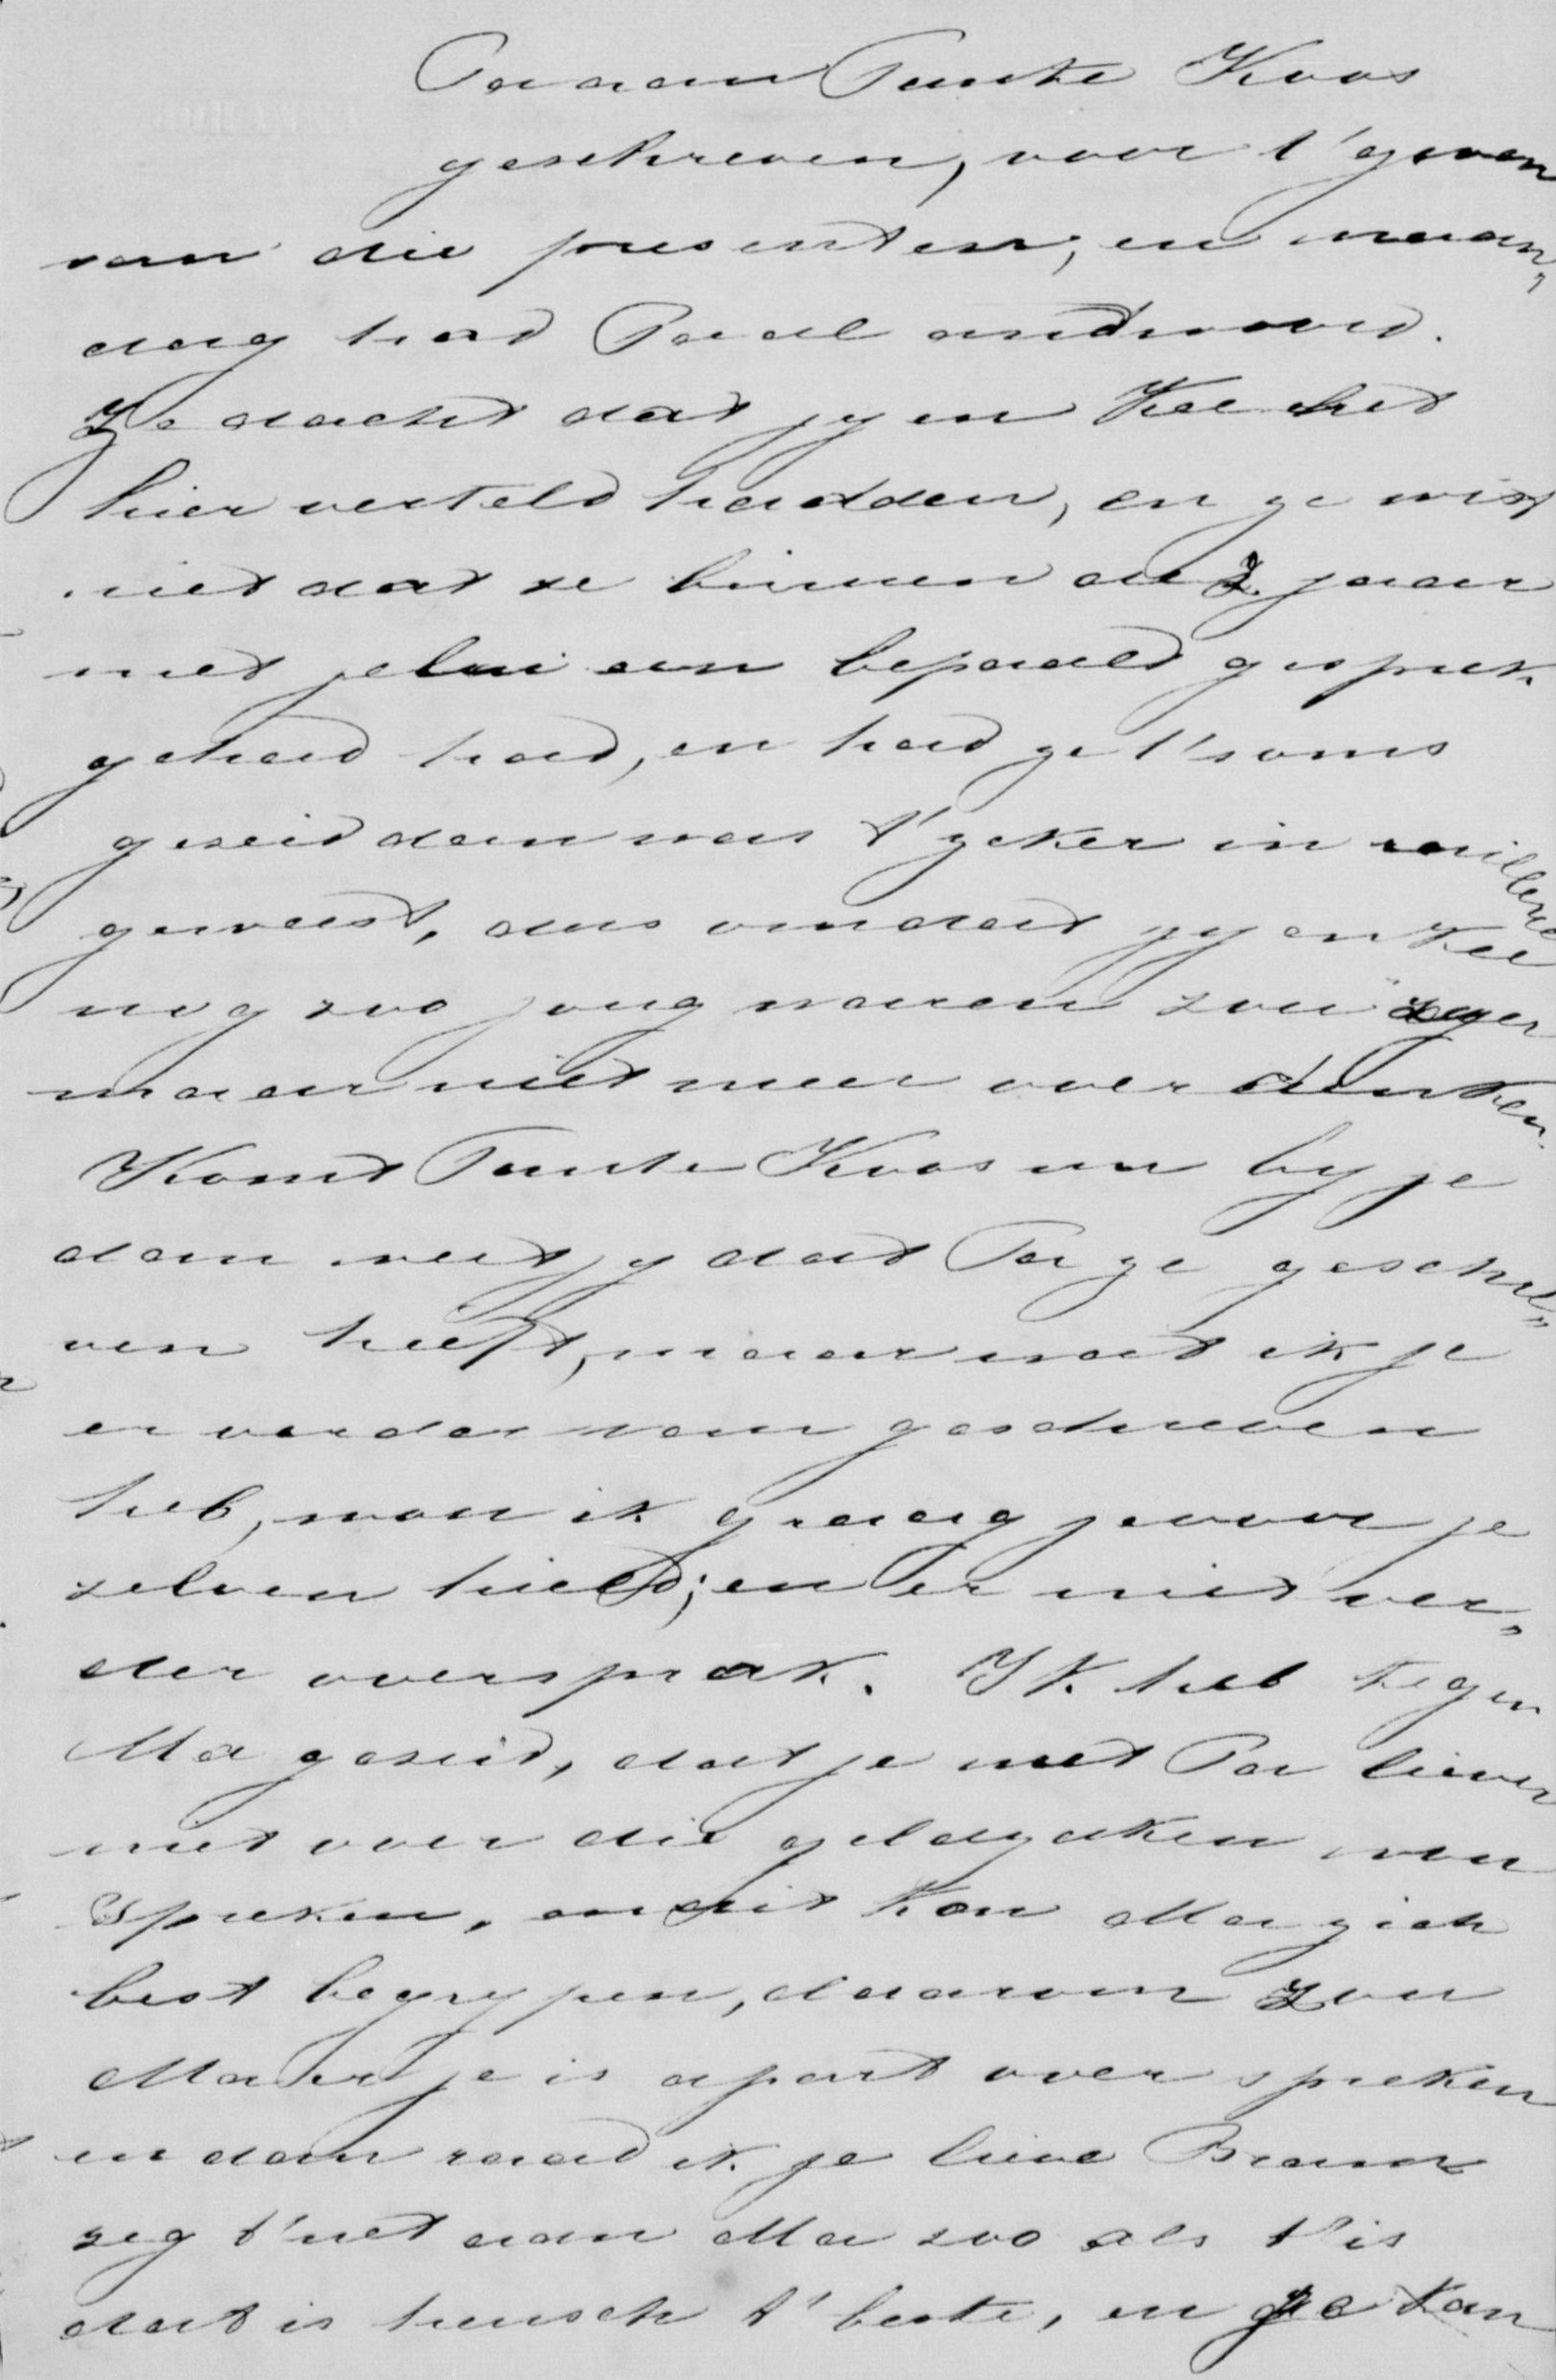 Pa aan Tante Koos
geschreven, voor t' geven
van die presenten, en maan„
dag had Pa al andwoord.
Ze dacht dat jy en Kee het
hier verteld hadden, en ze wist
niet dat ze binnen de 2 jaar
met jelui een bepaald gesprek
gehad had, en had ze t' soms
geseid dan was t' zeker in millende
geweest, dus omdat jy en Kee
nog zoo jong waren zou ze er
maar niet meer over denken.
Komt Tante Koos nu by je
dan weet jy dat Pa ze geschre„
ven heeft, maar wat ik je
er verder van geschreven
heb, wou ik graag je voor je
zelven hield; en er niet ver„
der over sprak. Ik heb tegen
Ma geseid, dat je met Pa liever
niet over die geldzaken wou
spreken, en dit kon Ma zich
best begrypen, daarom zou
Ma er je is apart over spreken
en dan raad ik je lieve Bram
zeg t' net aan Ma zoo als t' is
dat is heusch t' beste, en ze kan